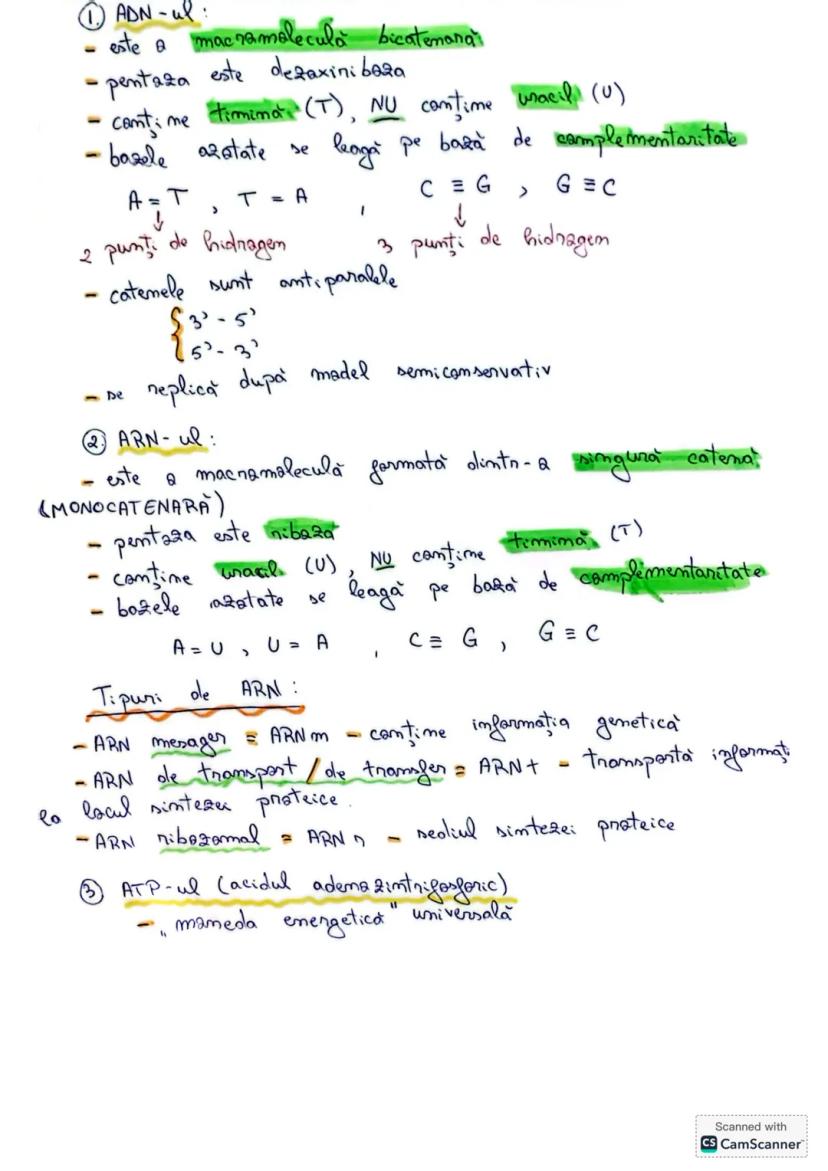 ① ADN-ul:
- este o macromoleculă bicatenară
- pentoza este dezoxiriboza
- conține timină (T), NU conține uracil (U)
- bazele azotate se leagă pe bază de complementaritate
A = T , T = A , C ≡ G , G ≡ C
↓ ↓
2 punți de hidrogen 3 punți de hidrogen
- catenele sunt antiparalele
{ 3' - 5'
5' - 3'
- se replică după model semiconservativ
② ARN-ul:
- este o macromoleculă formată dintr-o singură catenă
(MONOCATENARĂ)
- pentoza este riboza
- conține uracil (U), NU conține timină (T)
- bazele azotate se leagă pe bază de complementaritate
A = U , U = A , C ≡ G , G ≡ C
Tipuri de ARN:
- ARN mesager = ARN m - conține informația genetică
- ARN de transport / de transfer = ARN t - transportă informaț
la locul sintezei proteice.
- ARN ribozomal = ARN r - sediul sintezei proteice
③ ATP-ul (acidul adenozintrifosforic)
- „moneda energetică" universală
Scanned with
CS CamScanner